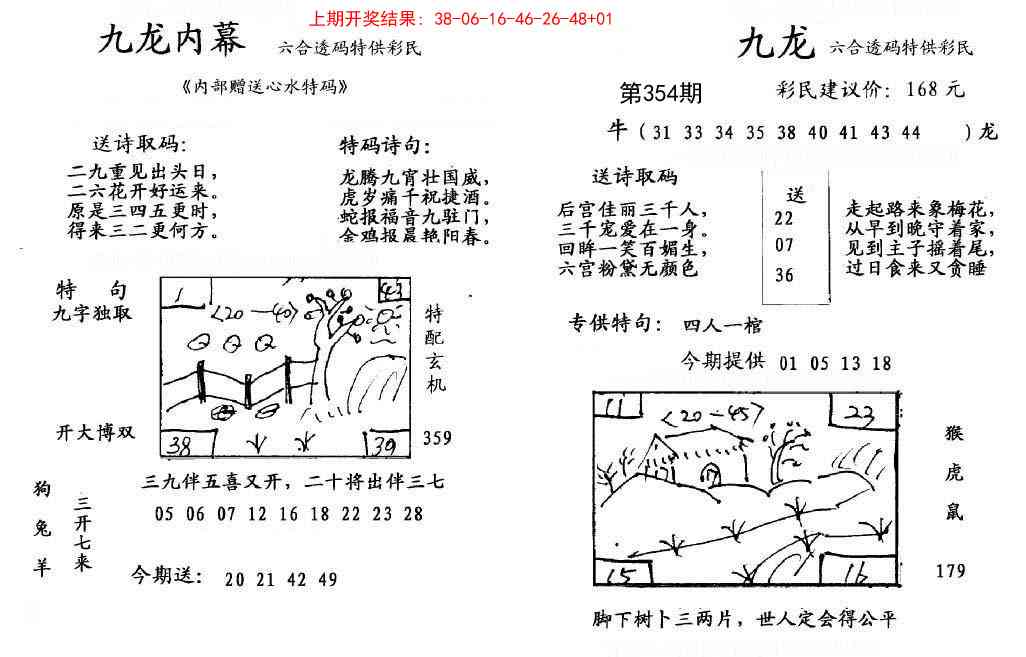 上期开奖结果：38-06-16-46-26-48+01
九龙内幕 六合透码特供彩民
《内部赠送心水特码》
送诗取码：
二九重见出头日，
二六花开好运来。
原是三四五更时，
得来三二更何方。
特码诗句：
龙腾九宵壮国威，
虎岁痛千祝捷酒。
蛇报福音九驻门，
金鸡报晨艳阳春。
特 句
九字独取
开大博双
1
43
<20—40>
38
39
特配玄机
359
三九伴五喜又开，二十将出伴三七
狗兔羊
三开七来
05 06 07 12 16 18 22 23 28
今期送： 20 21 42 49
九龙 六合透码特供彩民
第354期 彩民建议价：168元
牛（31 33 34 35 38 40 41 43 44 ）龙
送诗取码
后宫佳丽三千人，
三千宠爱在一身。
回眸一笑百媚生，
六宫粉黛无颜色
送
22
07
36
走起路来象梅花，
从早到晚守着家，
见到主子摇着尾，
过日食来又贪睡
专供特句： 四人一棺
今期提供 01 05 13 18
11
23
<20—45>
17
17
15
16
猴虎鼠
179
脚下树卜三两片，世人定会得公平